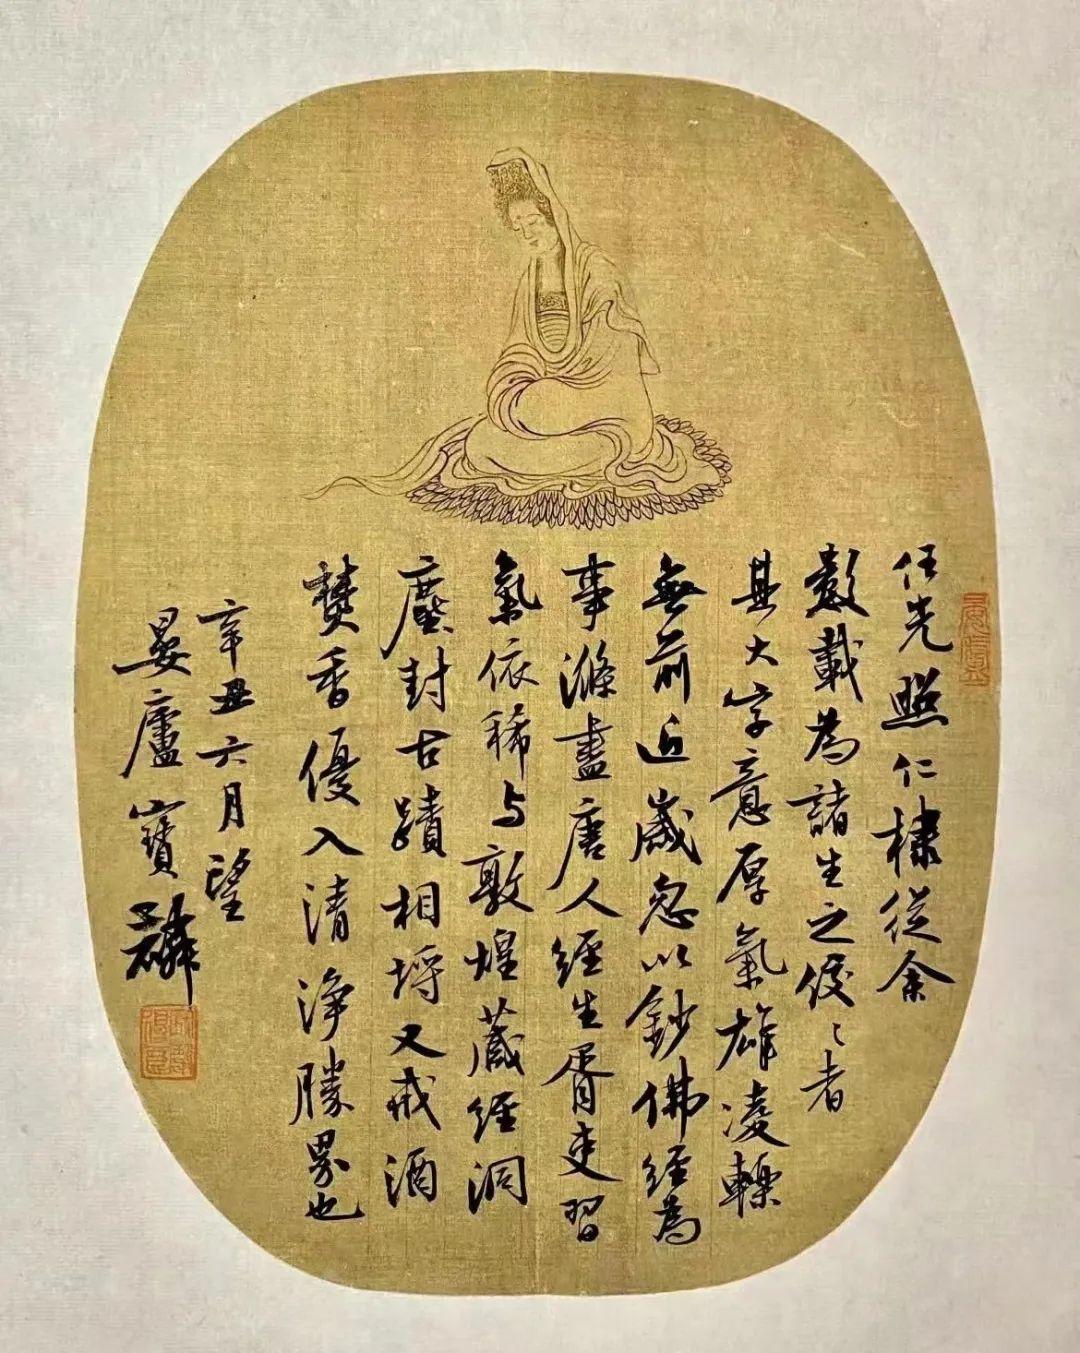 任先照仁棣從余
數載為諸生之佼〻者
其大字意厚氣雄凌轢
無前近歲忽以鈔佛經為
事滌盡唐人經生胥吏習
氣依稀与敦煌藏經洞
塵封古蹟相埒又戒酒
焚香優入清淨勝界也
辛丑六月望
晏廬寶麟